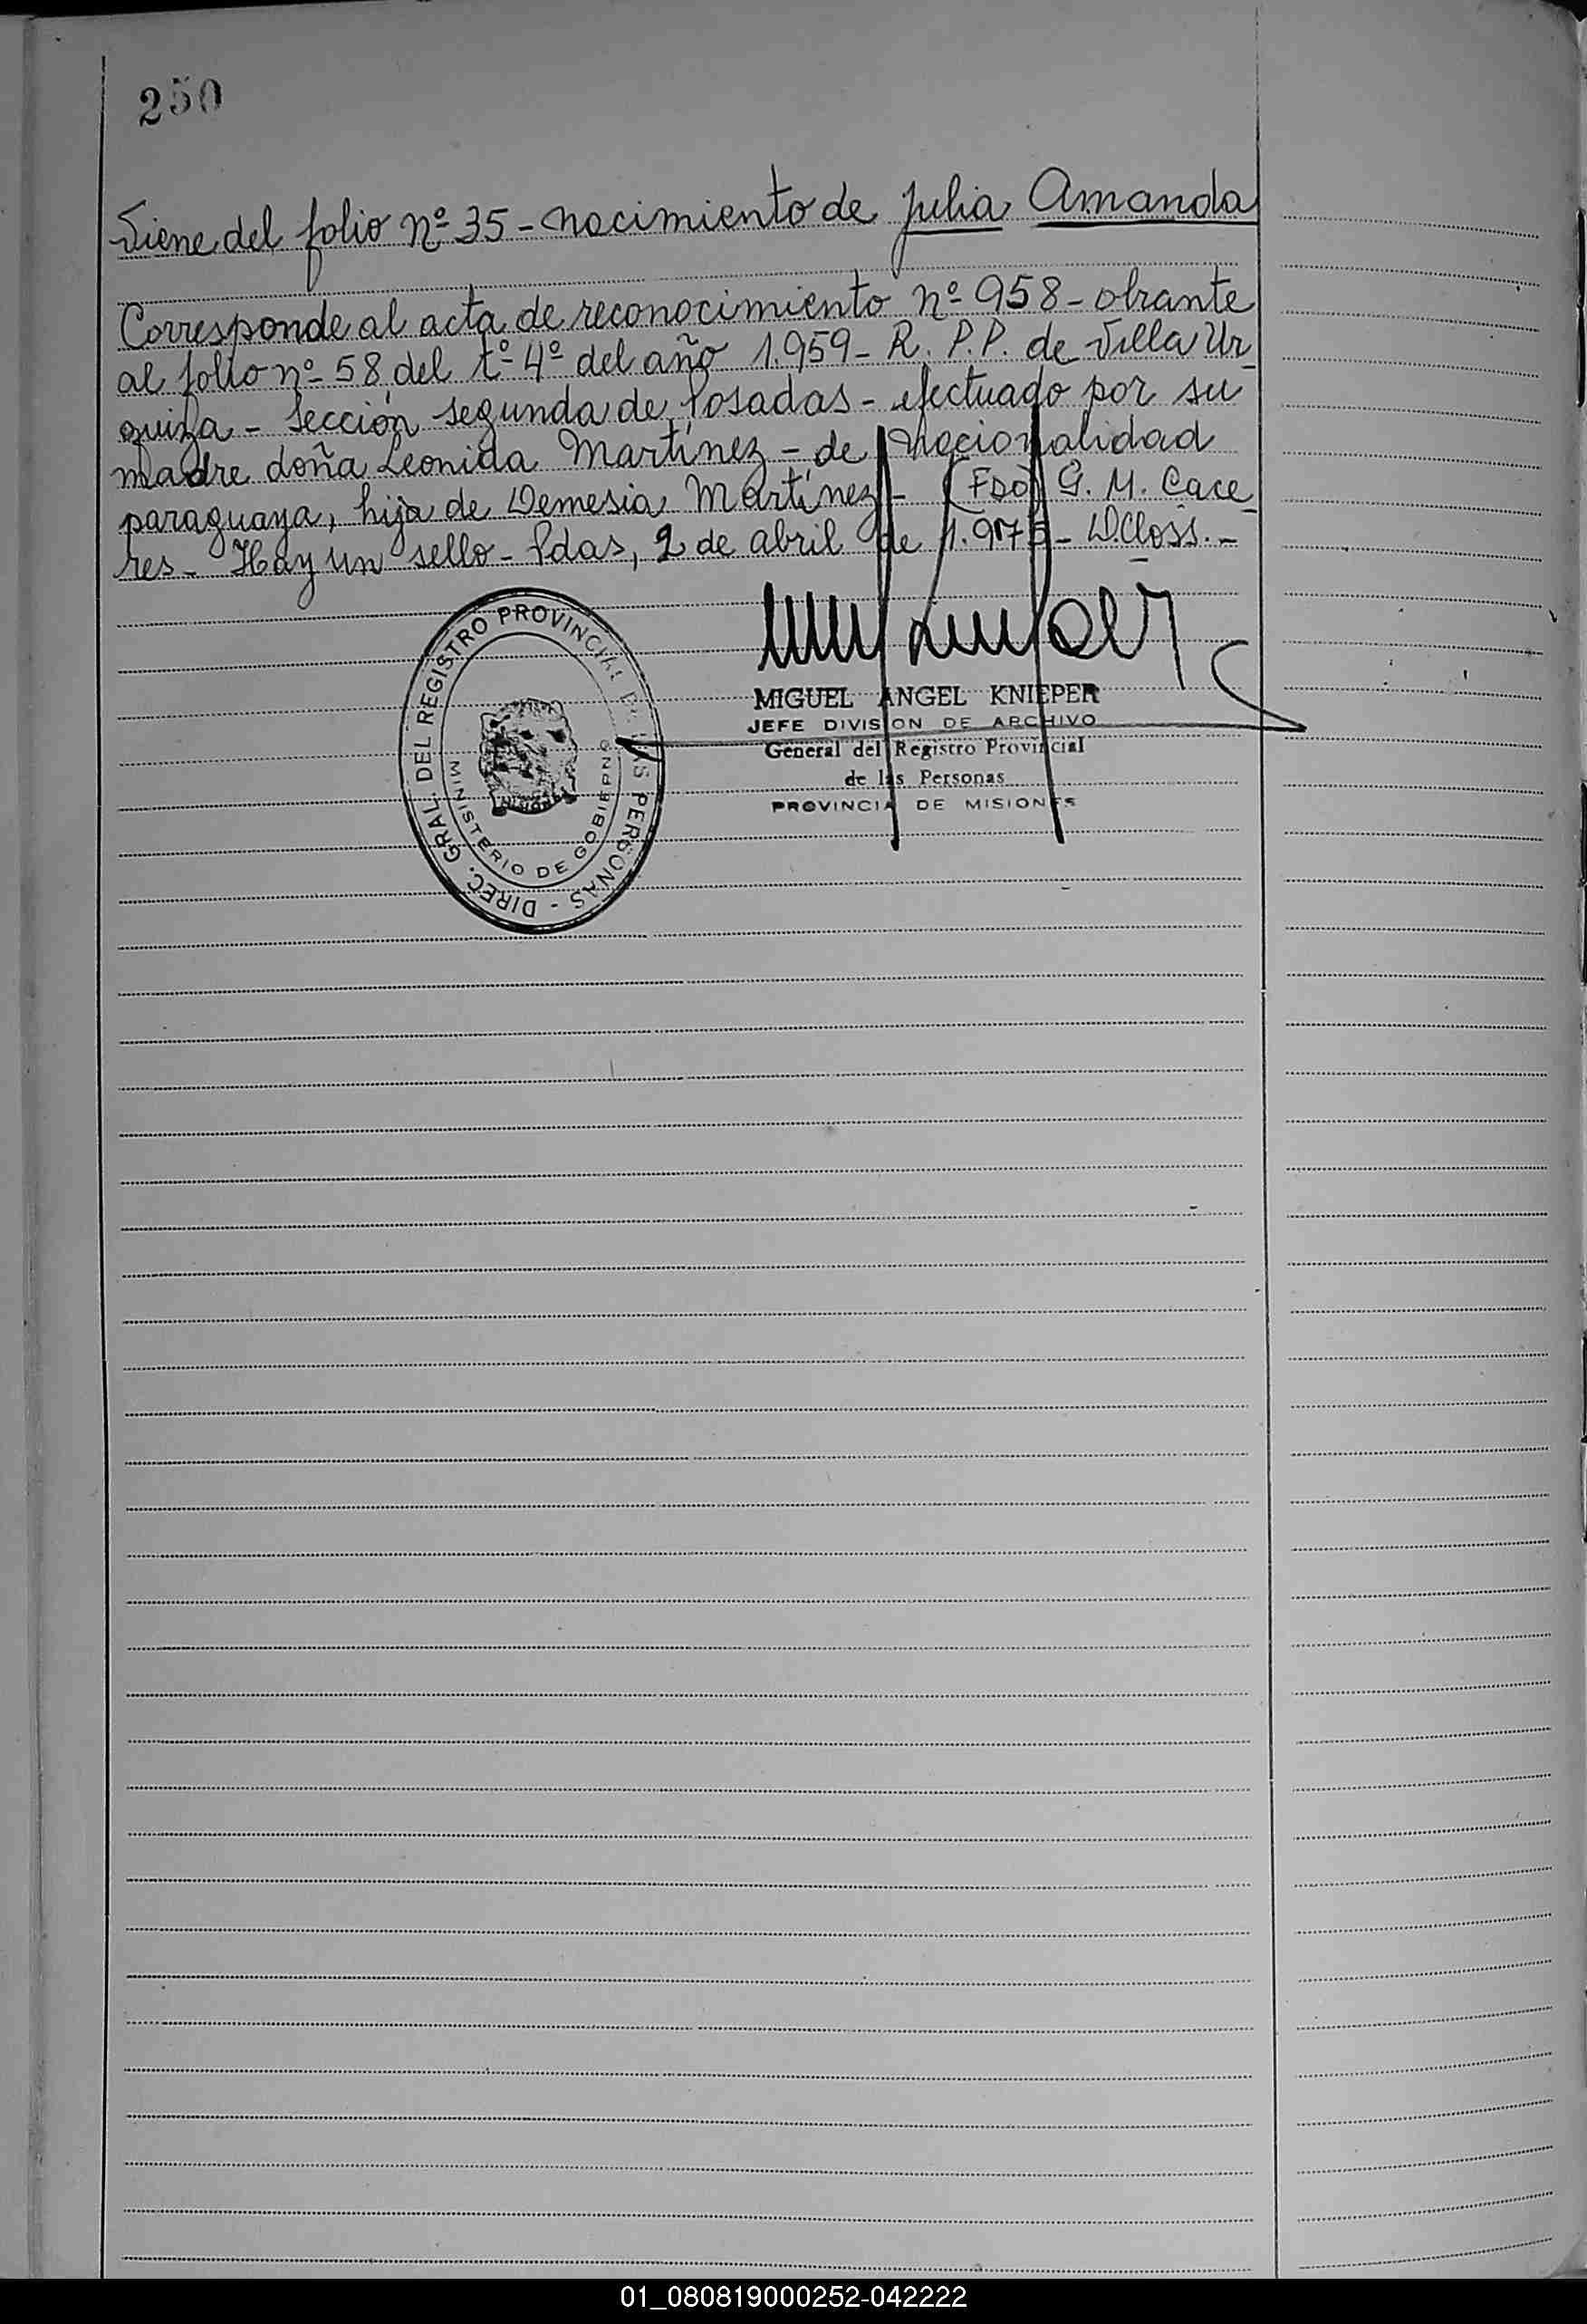 250
Viene del folio nº 35 - nacimiento de Julia Amanda
Corresponde al acta de reconocimiento nº 958 - obrante
al folio nº 58 del tº 4º del año 1.959 - R. P.P. de Villa Ur
quiza - Sección segunda de Posadas - efectuado por su
madre doña Leonida Martínez - de nacionalidad
paraguaya, hija de Demesia Martínez - (FDO) G. M. Cace
res - Hay un sello - Pdas, 2 de abril de 1.975 - D.Closs. -
DIREC. GRAL. DEL REGISTRO PROVINCIAL DE LAS PERSONAS -
MINISTERIO DE GOBIERNO
MISIONES
MIGUEL ANGEL KNIEPER
JEFE DIVISION DE ARCHIVO
General del Registro Provincial
de las Personas
PROVINCIA DE MISIONES
01_080819000252-042222